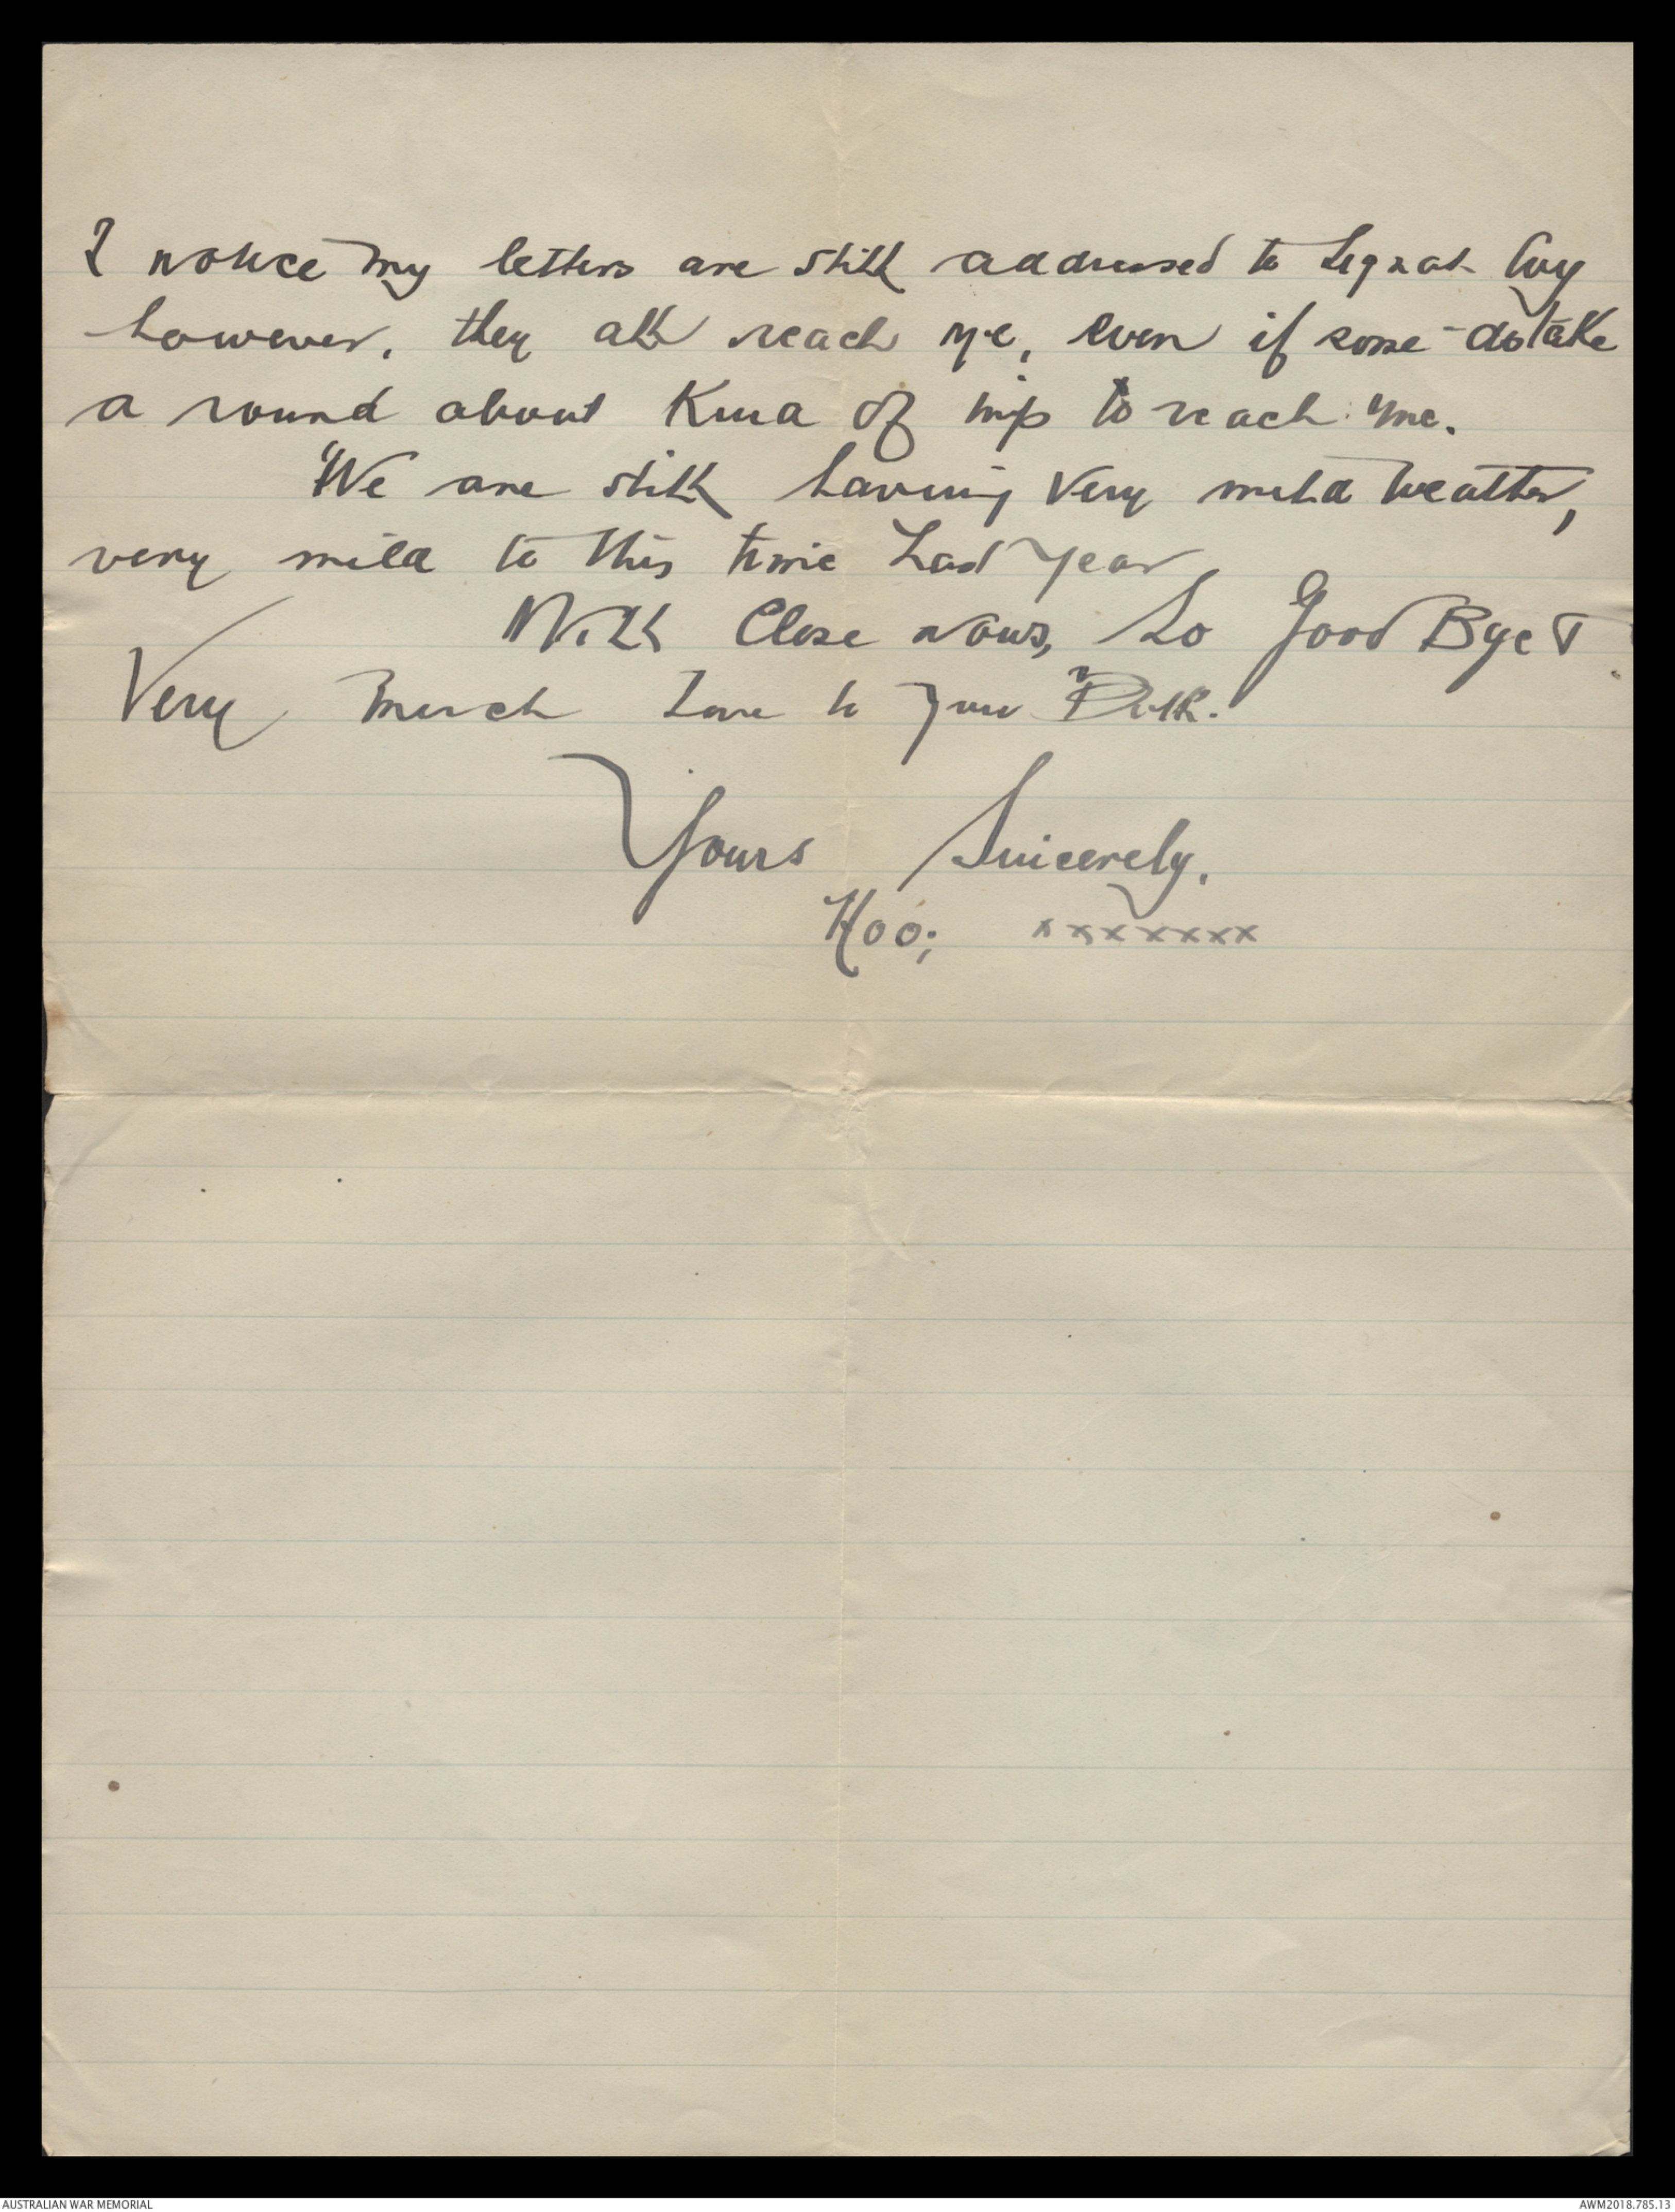 I notice my letters are still addressed to Legzat Coy
however, they all reach me, even if some do take
a round about kind of trip to reach me.
We are still having very mild weather,
very mild to this time last year
Will close now, so Good Bye &
Very much love to you Dick.
Yours Sincerely.
Hoo; xxxxxxx
AUSTRALIAN WAR MEMORIAL
AWM2018.785.13